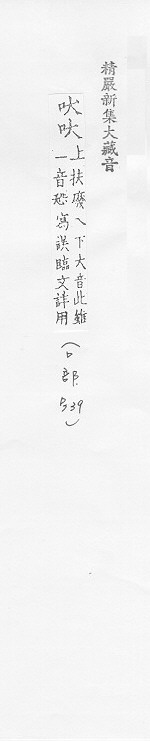 精嚴新集大藏音
吠吠 上扶廢乀下大音此雖
一音恐寫誤臨文詳用
(口部 539)